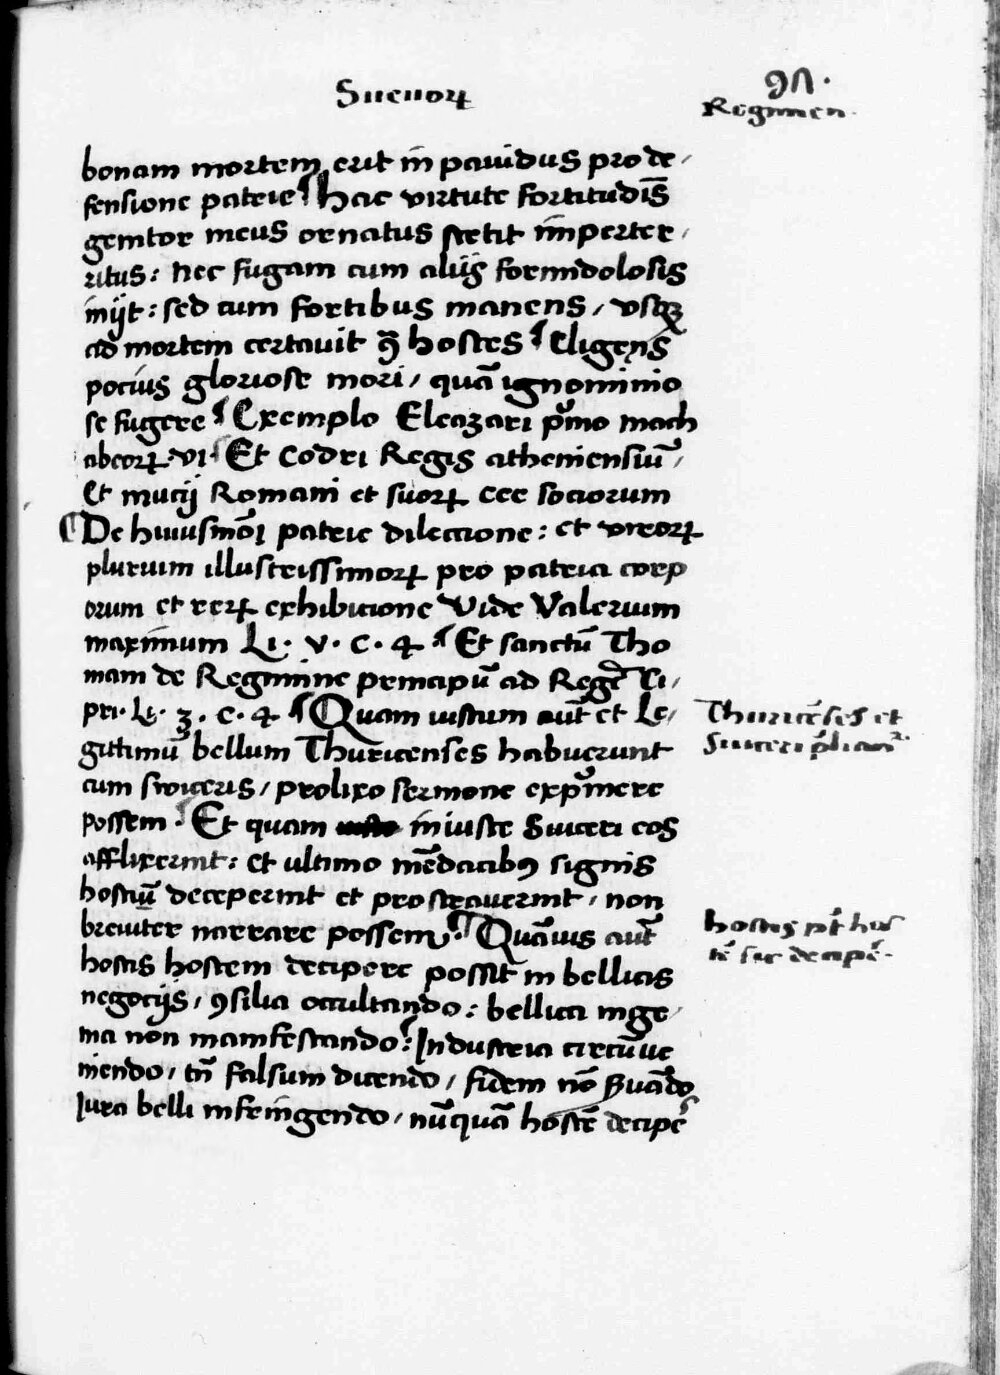 Sueuoꝝ
91.
Regimen.
bonam mortem erit in pauidus pro de/
fensione patrie ¶ hac virtute fortitudīs
genitor meus ornatus stetit imperter/
ritus: nec fugam cum alijs formidolosis
inijt: sed cum fortibus manens, vsqꝫ
ad mortem certauit ꝯ̄ hostes ¶ Eligens
pocius gloriose mori, quā ignominio
se fugere ¶ Exemplo Eleazari pͥmo mach
abeoꝝ. vi. Et Codri Regis atheniensiū,
Et mucij Romani et suoꝝ ccc sociorum
¶ De huiusmōi patrie dileccione: et viroꝝ
plurium illustrissimoꝝ pro patria corp
orum et reꝝ exhibicione Vide Valerium
maximum Li. v. c. 4 ¶ Et sanctū Tho
mam de Regimine principū ad Regē Ci/
pri. Li. 3. c. 4 ¶ Quam iustum aūt et Le/
gittimū bellum Thuricenses habuerunt
cum switeris, prolixo sermone expͥmere
possem. Et quam iniuste Suiceri eos
afflixerint: et ultimo mēdacibꝰ signis
hostiū deceperint et prostrauerint, non
breuiter narrare possem. ¶ Quāuis aūt
hostis hostem decipere possit in bellicis
negocijs, ꝯsilia occultando: bellica inge/
nia non manifestando: Industria circūue
niendo, tn̄ falsum dicendo, fidem nō seruādo
Iura belli infringendo, nūquā hostē decipe᷑
Thuricēses et
Suiceri
hostis pt̄ hos
tē sic decipe᷑.